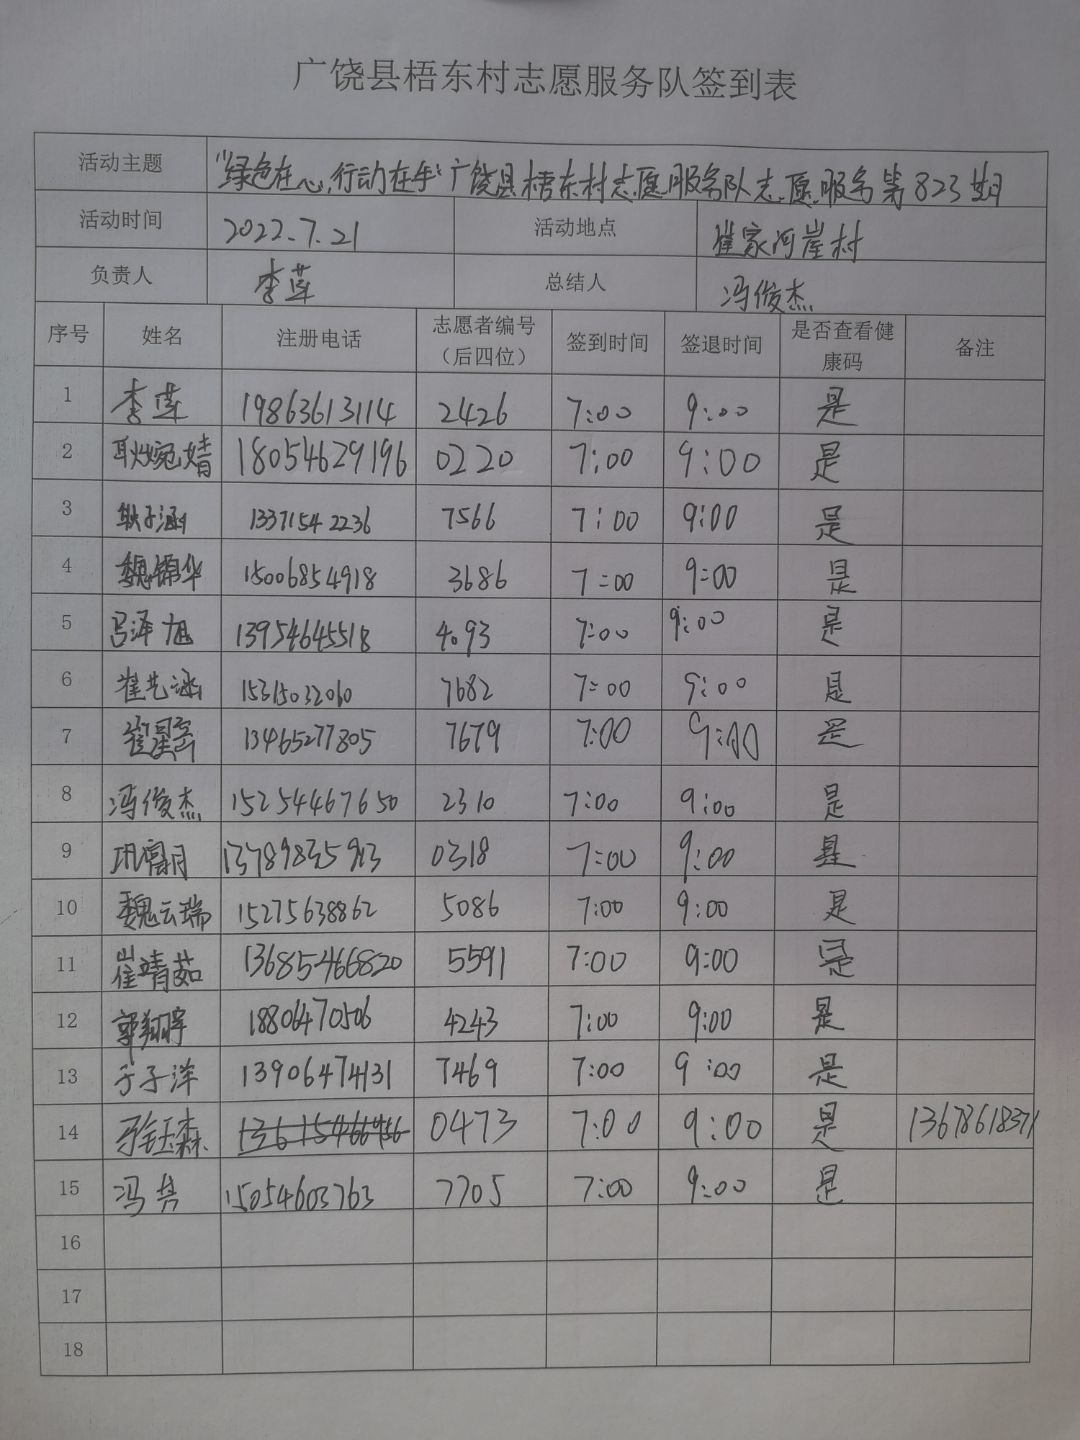 广饶县梧东村志愿服务队签到表
活动主题 “绿色在心,行动在手”广饶县梧东村志愿服务队志愿服务第823期
活动时间 2022.7.21 活动地点 崔家河崖村
负责人 李莲 总结人 冯俊杰
序号 姓名 注册电话 志愿者编号（后四位） 签到时间 签退时间 是否查看健康码 备注
1 李莲 19863613114 2426 7:00 9:00 是
2 耿婉婧 18054629196 0220 7:00 9:00 是
3 子涵 13371542236 7566 7:00 9:00 是
4 魏锦华 15006854918 3686 7:00 9:00 是
5 吕泽旭 13954645518 4093 7:00 9:00 是
6 崔艺涵 15315032060 7682 7:00 9:00 是
7 崔星 13465277805 7679 7:00 9:00 是
8 冯俊杰 15254467650 2310 7:00 9:00 是
9 月 0318 7:00 9:00 是
10 魏云瑞 15275638862 5086 7:00 9:00 是
11 崔靖茹 13685466820 5591 7:00 9:00 是
12 郭翔宇 18806470506 4243 7:00 9:00 是
13 于子洋 13906474131 7469 7:00 9:00 是
14 玉森 0473 7:00 9:00 是
15 冯 15054603763 7705 7:00 9:00 是
16
17
18